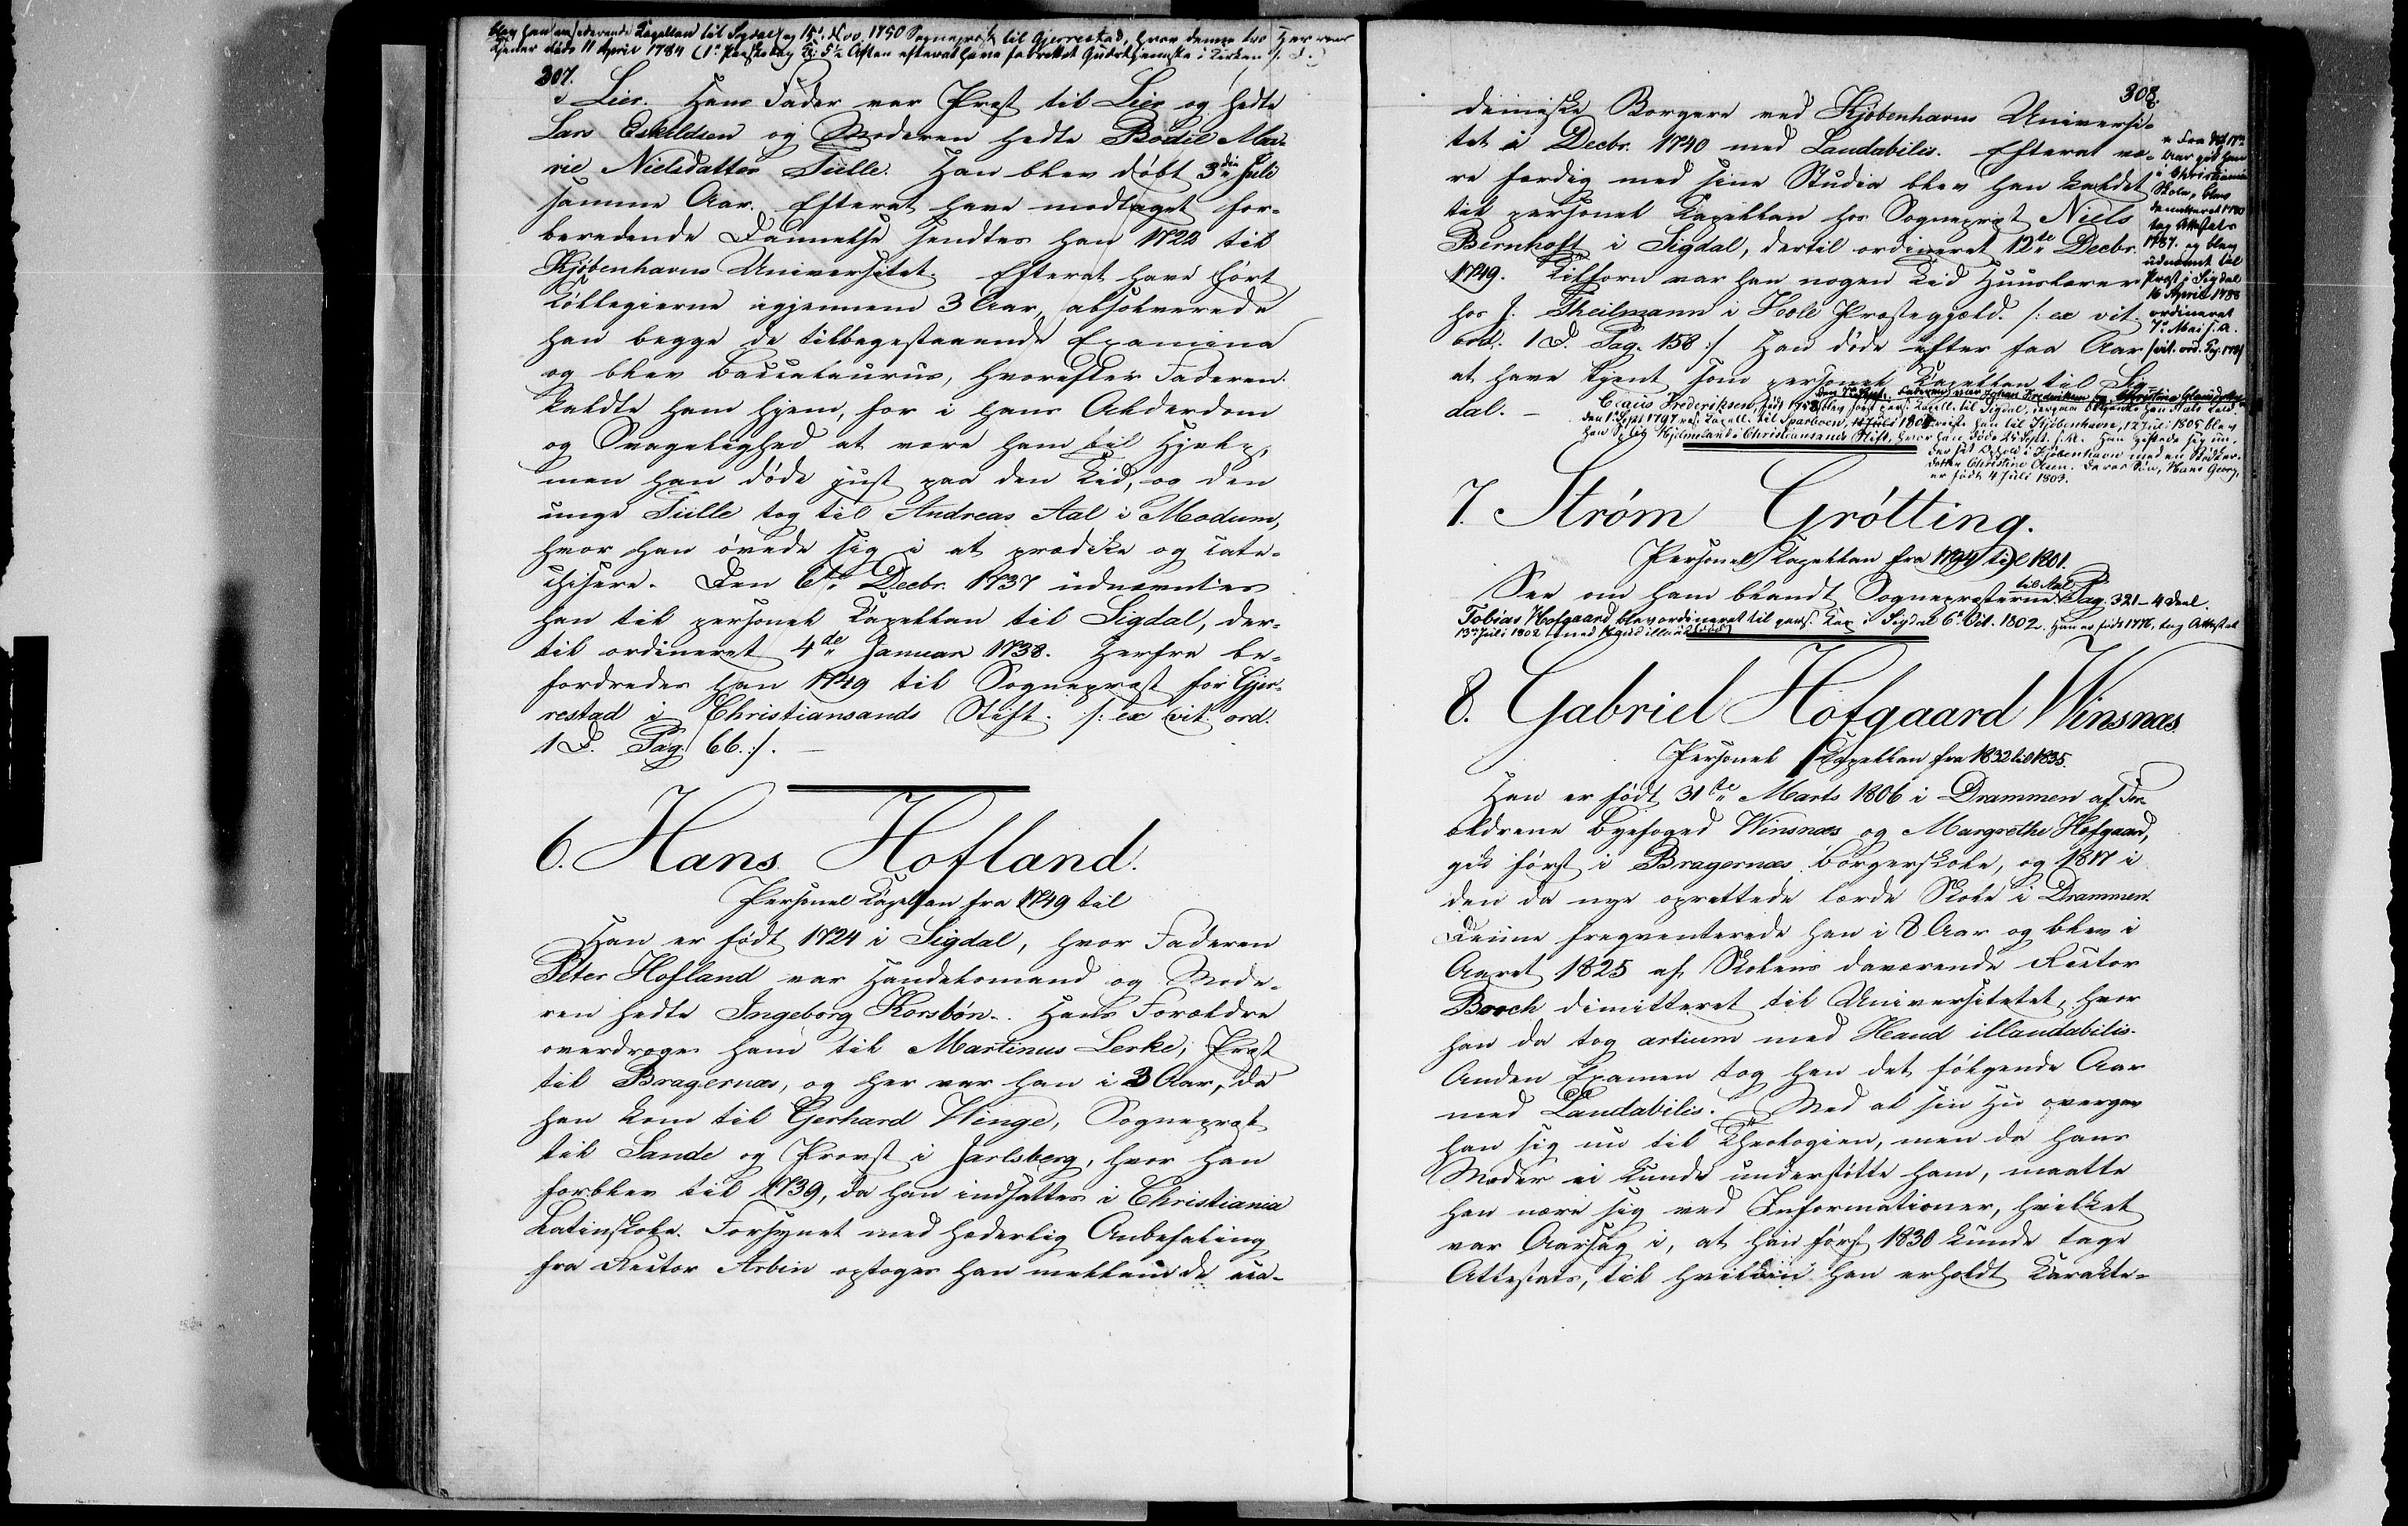 blev han residerende Kapellan til Sigdal og 15de Nov. 1750 Sogneprest til Gjerrestad, hvor denne tro Herrens
Tjener døde 11 April 1784 (1ste Paaskedag Kl: 5½ Aften efterat have forrettet Gudstjeneste i Kirken s. D.)
307.
i Lier. Hans Fader var Præst til Lier og hedte
Lars Eskildsen og Moderen hedte Bodil Ma-
rie Nielsdatter Tulle. Han blev døbt 3die Juli
samme Aar. Efterat have modtaget for-
beredende Dannelse sendtes han 1722 til
Kjøbenhavns Universitet. Efterat have hørt
Collegierne igjennem 3 Aar, absolverede
han begge de tilbagestaaende Examina
og blev Baccalaurus, hvorefter Faderen
kaldte ham hjem, for i hans Alderdom
og Svagelighed at være ham til Hjelp,
men han døde just paa den Tid, og den
unge Tulle tog til Andreas Aal i Modum,
hvor han øvede sig i at prædike og kate-
chisere. Den 6te Decbr. 1737 udnævntes
han til personel Kapellan til Sigdal, der-
til ordineret 4de Januar 1738. Herfra be-
fordredes han 1749 til Sogneprest for Gjer-
restad i Christiansands Stift. /: ex vit. ord.
1 D. Pag. 66. :/. —
6. Hans Hofland.
Personel Kapellan fra 1749 til
Han er født 1724 i Sigdal, hvor Faderen
Peter Hofland var Handelsmand og Mode-
ren hedte Ingeborg Korsbøn. Hans Forældre
overdroge ham til Martinus Lerke, Præst
til Bragernæs, og her var han i 3 Aar, da
han kom til Gerhard Winge, Sogneprest
til Sande og Provst i Jarlsberg, hvor han
forblev til 1739, da han indsattes i Christiania
Latinskole. Forsynet med hæderlig Anbefaling
fra Rector Arbin optoges han mellem de aca-
308.
demiske Borgere ved Kjøbenhavns Universi-
tet i Decbr. 1740 med Laudabilis. Efterat væ-
re færdig med sine Studia blev han kaldet
til personel Kapellan hos Sogneprest Niels
Bernhoft i Sigdal, dertil ordineret 12te Decbr.
1749. Tilforn var han nogen Tid Huuslærer
hos J. Theilmann i Hole Præstegjæld. /: ex vit.
ord. 1 D. Pag. 158 :/ Han døde efter faa Aar
at have tjent som personel Kapellan til Sig-
dal. —
i Christiania
Skole, blev
demitteret 1780
tog Attestats
1787. og blev
udnævnt til
Præst i Sigdal
16 April 1788
ordineret
7de Mai s. A.
Claus Frederiksen, født 1758, blev først pers. Kapell. til Sigdal,
den 1 Sept 1797 res. Kapell. til Sparboen, 1804 reiste han til Kjøbenhavn, 12 Juli 1805 blev
han Christiansands Stift, hvor han døde 25 Sept. s. A. Han giftede sig un-
der sit Ophold i Kjøbenhavn med en
datter Christine Olsen. Deres Søn, Hans Georg,
er født 4 Juli 1803.
7. Strøm Grøtting.
Personel Kapellan fra 1794 til 1801.
See om ham blandt Sognepresterne til Aal Pag. 321 – 4 Deel.
Tobias Hofgaard blev ordineret til pers. Kap. i Sigdal 6te Oct. 1802. Han er født 1776, tog Attestats
13de Juli 1802 med Haud illaud.
8. Gabriel Hofgaard Winsnæs.
Personel Kapellan fra 1832 til 1835.
Han er født 31te Marts 1806 i Drammen af For-
ældrene Byefoged Winsnæs og Margrethe Hofgaard,
gik først i Bragernæs Borgerskole, og 1817 i
den da nye oprettede lærde Skole i Drammen.
Denne freqventerede han i 8 Aar og blev i
Aaret 1825 af Skolens daværende Rector
Borch dimitteret til Universitetet, hvor
han da tog artium med Haud illaudabilis.
Anden Examen tog han det følgende Aar
med Laudabilis. Med al sin Hu overgav
han sig nu til Theologien, men da hans
Moder ei kunde understøtte ham, maatte
han nære sig ved Informationer, hvilket
var Aarsag i, at han først 1830 kunde tage
Attestats, til hvilken han erholdt Karakte-